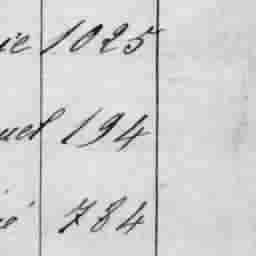 ie 1025
uel 194
ié 784